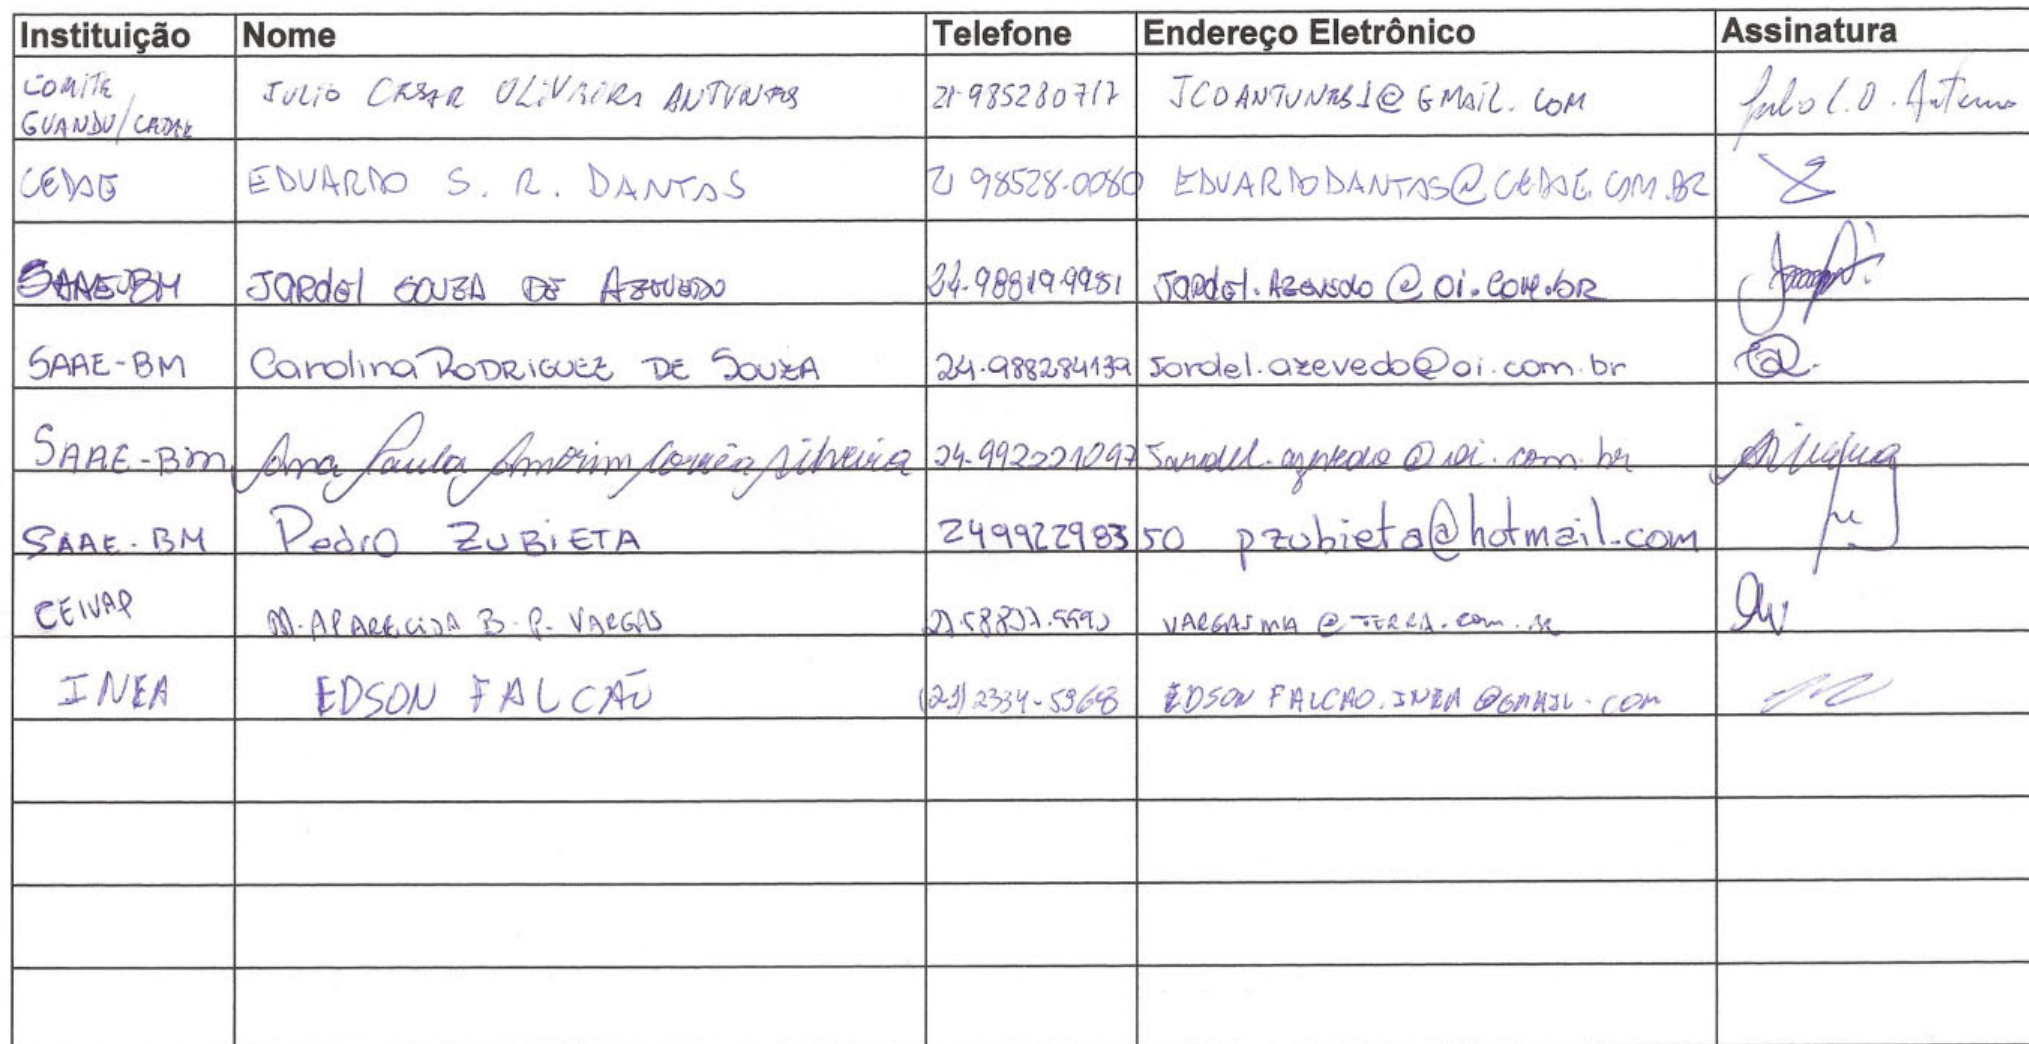 Instituição Nome Telefone Endereço Eletrônico Assinatura
COMITE
GUANDU/CEDAE JULIO CESAR OLIVEIRA ANTUNES 21-985280717 JCOANTUNES1@GMAIL.COM Julio C.O. Antunes
CEDAE EDUARDO S. R. DANTAS 21 98528-0080 EDUARDODANTAS@CEDAE.COM.BR
SAAE-BM JARdel SOUZA DE AZEVEDO 24-98819-9951 JARdel.AZEVEDO@oi.com.bR
SAAE-BM Carolina RODRIGUEZ DE SOUZA 24-988284139 Jardel.azevedo@oi.com.br
SAAE-BM Ana Paula Amorim Corrêa Silveira 24-992221097 Jardel.azevedo@oi.com.br
SAAE-BM Pedro ZUBIETA 24992298350 pzubieta@hotmail.com
CEIVAP M. APARECIDA B. P. VARGAS VARGASMA@TERRA.com.br
INEA EDSON FALCÃO (21) 2334-5968 EDSONFALCAO.INEA@GMAIL.COM